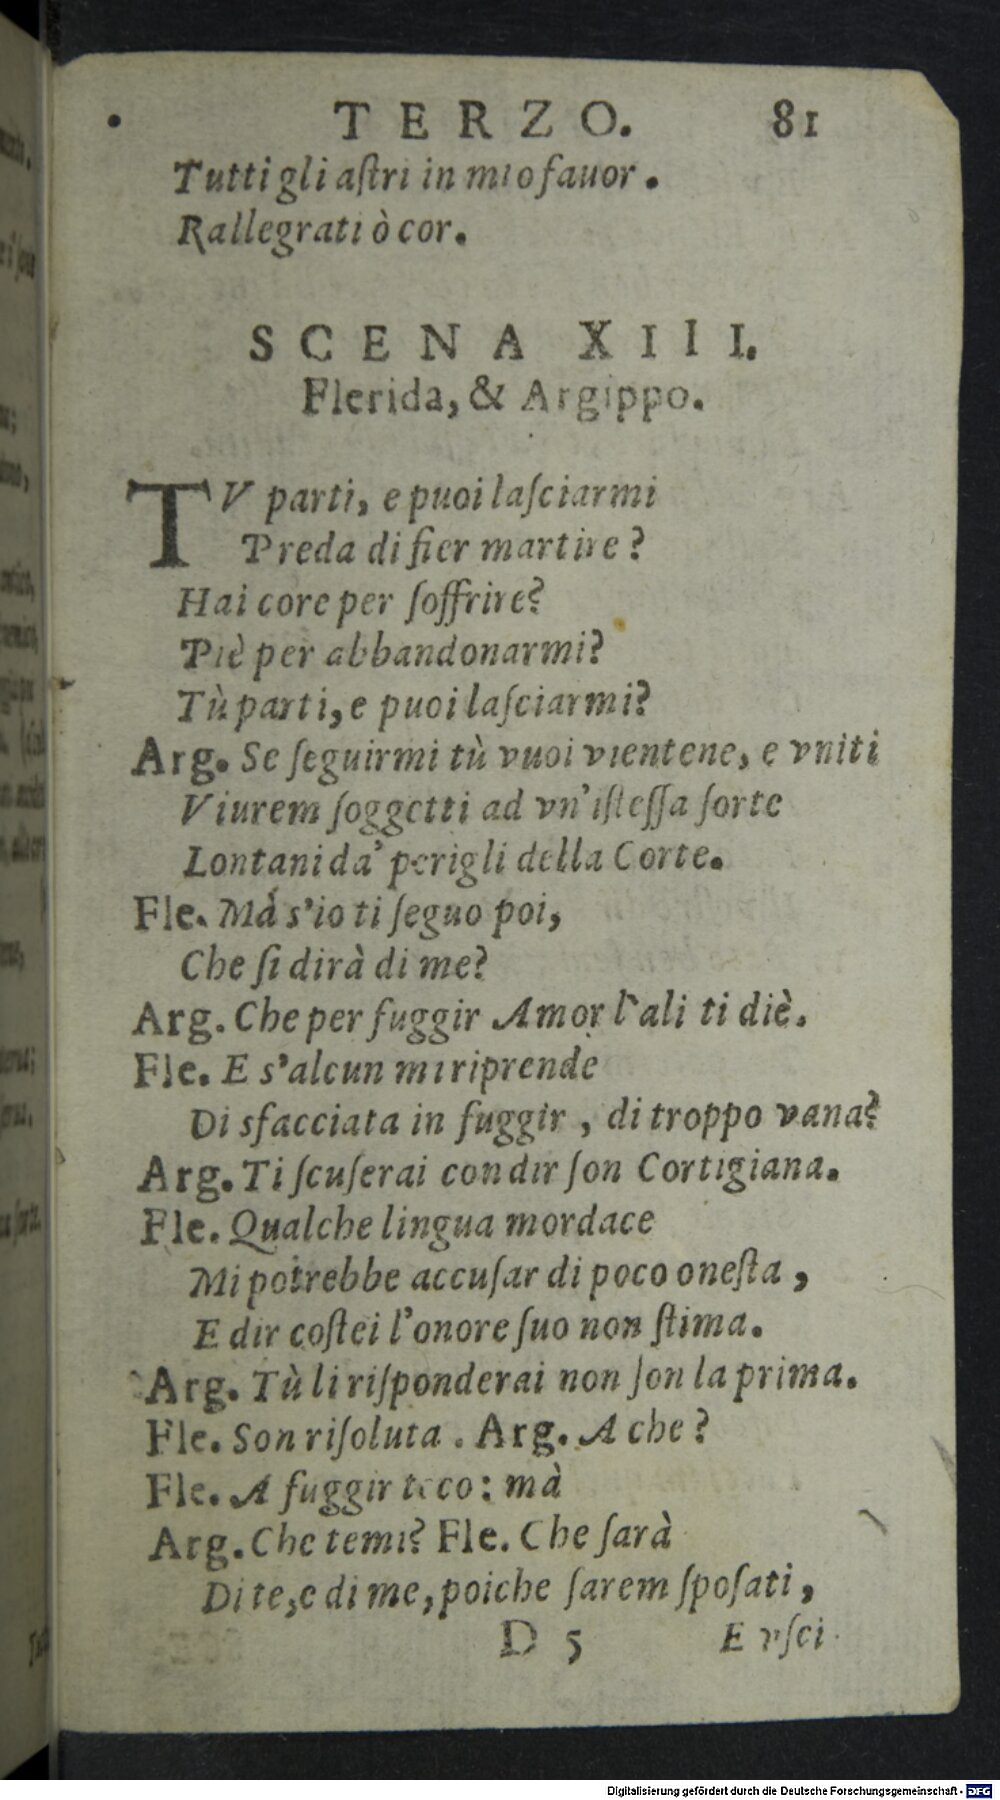 TERZO. 81
Tutti gli aſtri in mio fauor.
Rallegrati ò cor.
SCENA XIII.
Flerida, & Argippo.
TV parti, e puoi laſciarmi
Preda di fier martire?
Hai core per ſoffrire?
Piè per abbandonarmi?
Tù parti, e puoi laſciarmi?
Arg. Se ſeguirmi tù vuoi vientene, e vniti
Viurem ſoggetti ad vn'iſteſſa ſorte
Lontani da' perigli della Corte.
Fle. Mà s'io ti ſeguo poi,
Che ſi dirà di me?
Arg. Che per fuggir Amor l'ali ti diè.
Fle. E s'alcun mi riprende
Di sfacciata in fuggir, di troppo vana?
Arg. Ti ſcuſerai con dir ſon Cortigiana.
Fle. Qualche lingua mordace
Mi potrebbe accuſar di poco oneſta,
E dir coſtei l'onore ſuo non ſtima.
Arg. Tù li riſponderai non ſon la prima.
Fle. Son riſoluta. Arg. A che?
Fle. A fuggir teco: mà
Arg. Che temi? Fle. Che ſarà
Di te, e di me, poiche ſarem ſpoſati,
D 5 E vſci
Digitalisierung gefördert durch die Deutsche Forschungsgemeinschaft - DFG